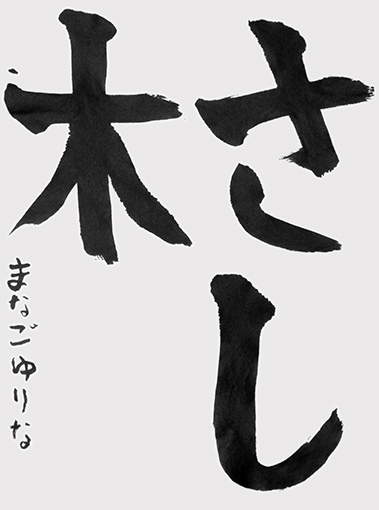 さし
木
まなごゆりな